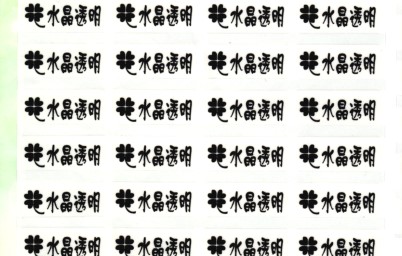 水晶透明 水晶透明 水晶透明 水晶透明
水晶透明 水晶透明 水晶透明 水晶透明
水晶透明 水晶透明 水晶透明 水晶透明
水晶透明 水晶透明 水晶透明 水晶透明
水晶透明 水晶透明 水晶透明 水晶透明
水晶透明 水晶透明 水晶透明 水晶透明